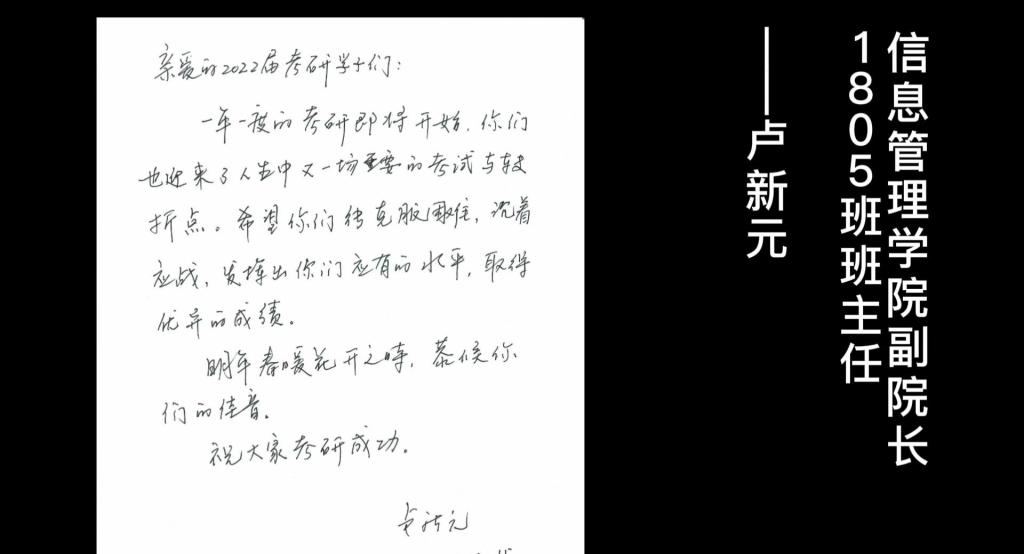 亲爱的2022届考研学子们：
一年一度的考研即将开始，你们
也迎来了人生中又一场重要的考试与转
折点。希望你们能克服困难，沉着
应战，发挥出你们应有的水平，取得
优异的成绩。
明年春暖花开之时，恭候你
们的佳音。
祝大家考研成功。
卢新元
信息管理学院副院长
1805班班主任
——卢新元